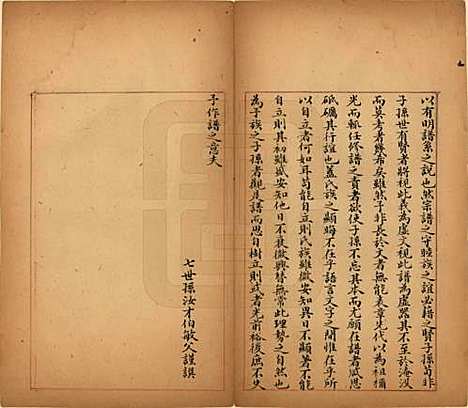 以有明譜系之說也然宗譜之守睦族之誼必藉之賢子孫苟非
子孫世有賢者將視此義為虛文視此譜為虛器其不至於淹沒
而莫考者幾希矣雖然予非長於文者無能表章先代以為祖禰
光而輒任修譜之責者欲使子孫不忘其本而尤願在譜者咸思
砥礪其行誼也蓋氏族之顯晦不在乎語言文字之間惟在乎所
以自立者何如耳苟能自立則氏族雖微安知異日不能顯著不能
自立則其初雖盛安知他日不復微興替無常此理勢之自然也
為子族之子孫者觀是譜而思自樹立則或者光前裕後庶不失
予作譜之意夫
七世孫汝才伯敏父謹譔